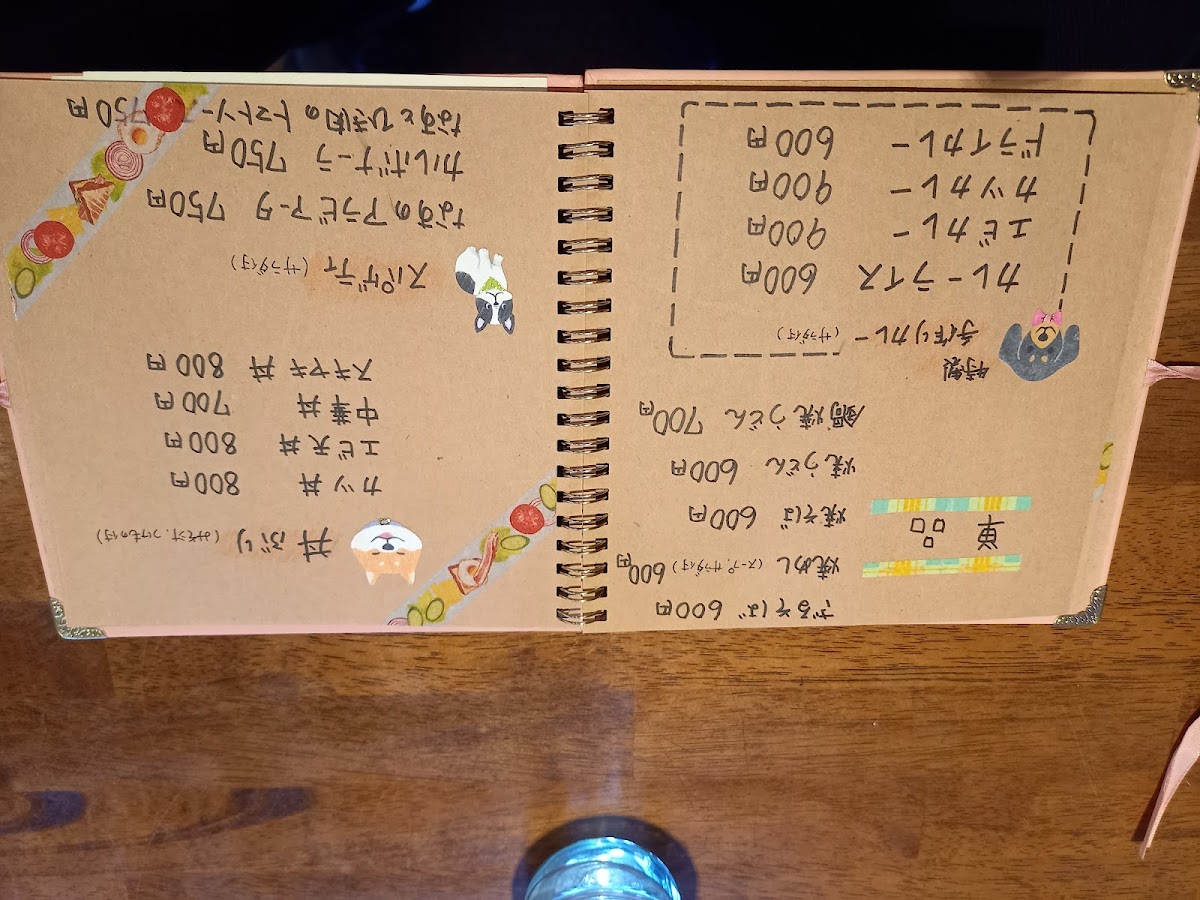 単品
ざるそば 600円
焼めし (スープ、サラダ付) 600円
焼そば 600円
焼うどん 600円
鍋焼うどん 700円
特製
手作りカレー (サラダ付)
カレーライス 600円
エビカレー 900円
カツカレー 900円
ドライカレー 600円
丼ぶり (みそ汁、つけもの付)
カツ丼 800円
エビ天丼 800円
中華丼 700円
スキヤキ丼 800円
スパゲティ (サラダ付)
なすのアラビアータ 750円
カルボナーラ 750円
なすとひき肉のトマトソース 750円